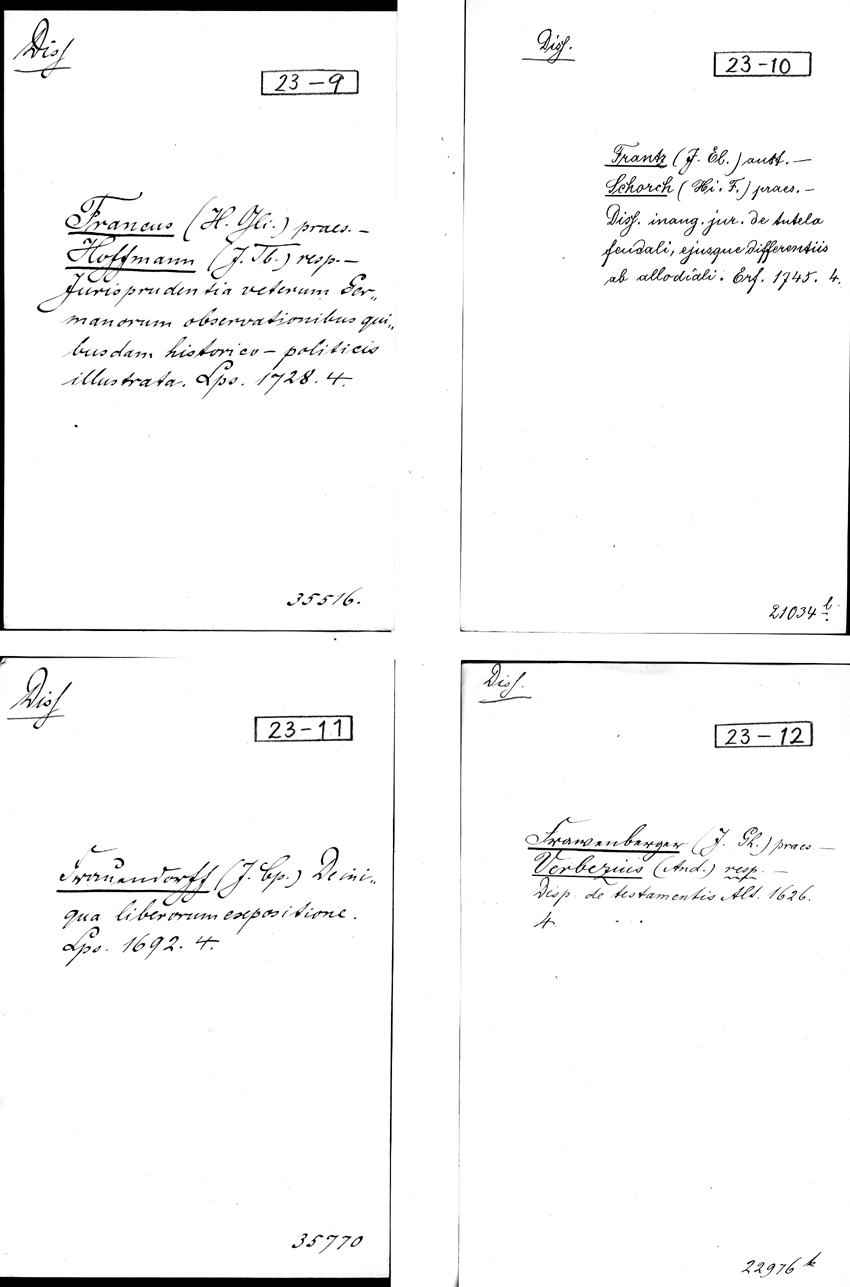 Diss
23-9
Francus (H. Gli.) praes. —
Hoffmann (J. Tb.) resp. —
Jurisprudentia veterum Ger„
manorum observationibus qui„
busdam historico-politicis
illustrata. Lps. 1728. 4.
35516.
Diss.
23-10
Frantz (J. El.) autt. —
Schorch (Hi. F.) praes. —
Diss. inaug. jur. de tutela
feudali, ejusque differentiis
ab allodiali. Erf. 1745. 4.
21034 l.
Diss
23-11
Frauendorff (J. Cp.) De ini„
qua liberorum expositione.
Lps. 1692. 4.
35770
Diss.
23-12
Frawenberger (J. Gh.) praes —
Verbezius (And.) resp. —
Disp. de testamentis Alt. 1626.
4
22976 k